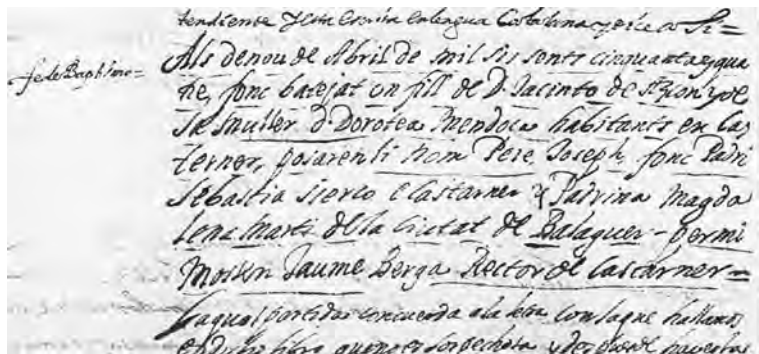 tendiente y esta Escrita en lengua Catalana y dice assi =
fe de Baptismo =
Als denou de Abril de mil sis sents cinquanta y qua
tre, fonc batejat un fill de D. Jacinto de y de
sa muller D. Dorotea Mendoça habitants en Cas
terner, posarenli nom Pere, Joseph, fonc Padri
Sebastia Sierco Castarner y Padrina Magda
lena Marti de la Ciutat de Balaguer - per mi
Mossen Jaume Berga Rector de Castarner =
La qual partida concuerda a la letra con la que hallamos
en dicho libro que no es sospechosa y